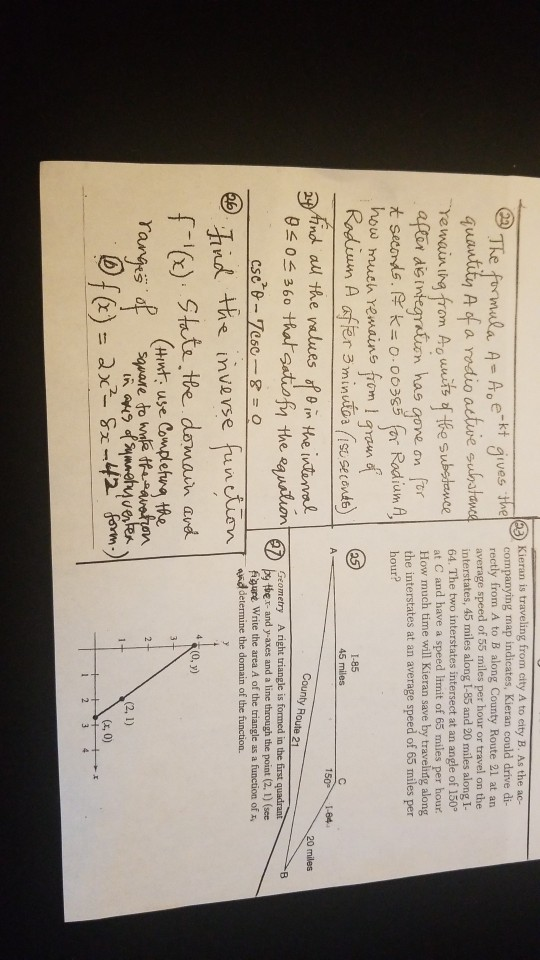 (22) The formula A = A₀ e^-kt gives the
quantity A of a radio active substance
remaining from A₀ units of the substance
after disintegration has gone on for
t seconds. If k = 0.00385 for Radium A,
how much remains from 1 gram of
Radium A after 3 minutes (180 seconds)
(24) Find all the values of θ in the interval
0 ≤ 0 ≤ 360 that satisfy the equation
csc²θ - 7csc - 8 = 0
(26) Find the inverse function
f⁻¹(x). State the domain and
ranges of
(Hint: use Completing the
square to write the equation
in axis of symmetry vertex
form.)
(b) f(x) = 2x² - 8x - 42
(23) Kieran is traveling from city A to city B. As the ac-
companying map indicates, Kieran could drive di-
rectly from A to B along County Route 21 at an
average speed of 55 miles per hour or travel on the
interstates, 45 miles along I-85 and 20 miles along I-
64. The two interstates intersect at an angle of 150°
at C and have a speed limit of 65 miles per hour.
How much time will Kieran save by traveling along
the interstates at an average speed of 65 miles per
hour?
(25)
I-85
45 miles
C
150°
I-64
20 miles
A
County Route 21
B
(27) Geometry A right triangle is formed in the first quadrant
by the x- and y-axes and a line through the point (2, 1) (see
figure. Write the area A of the triangle as a function of x,
and determine the domain of the function.
y
4
(0, y)
3
2
1
(2, 1)
(x, 0)
1 2 3 4
x